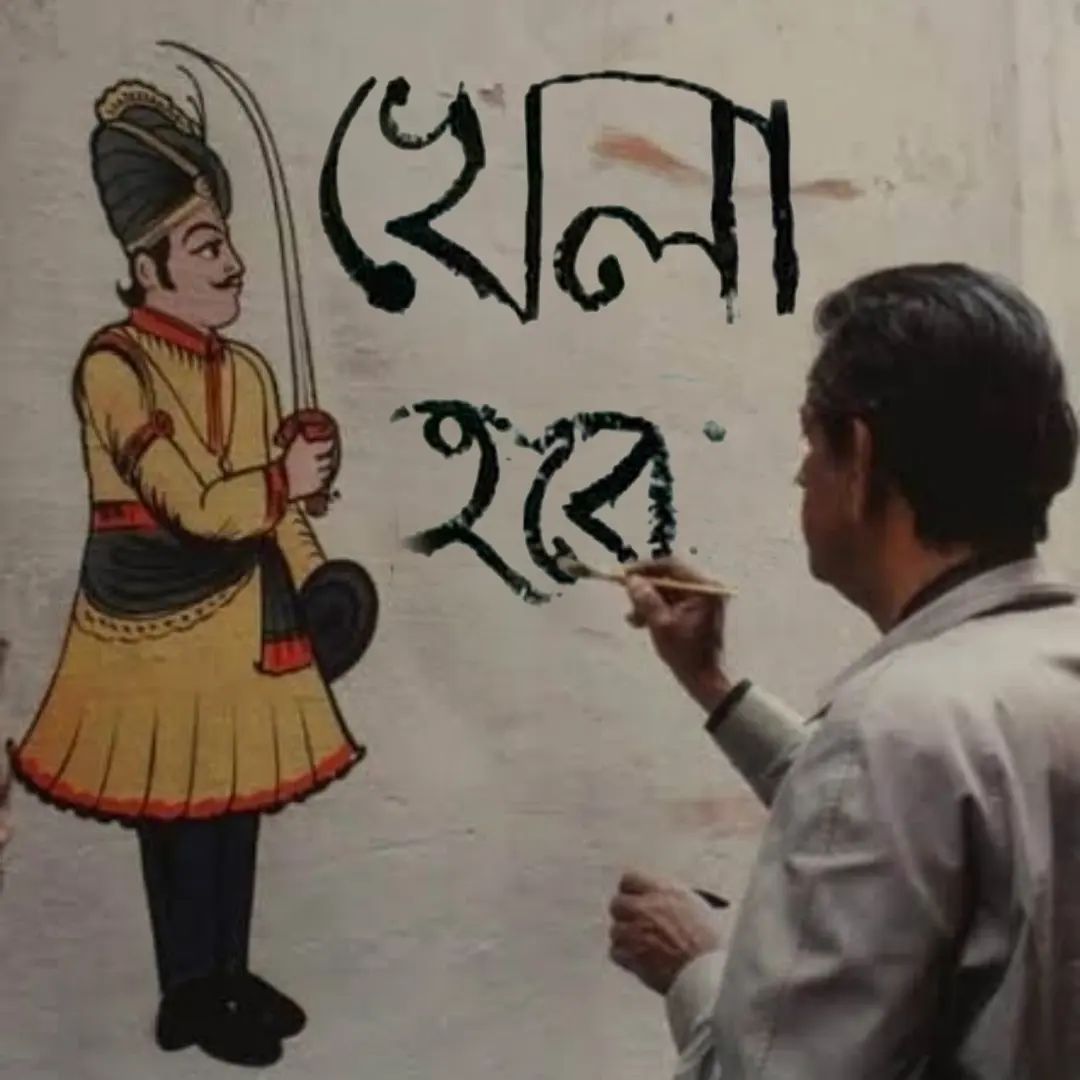 খেলা
হবে